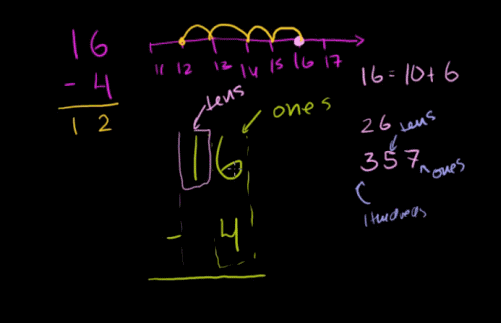 16
- 4
12
11 12 13 14 15 16 17
tens
ones
16
- 4
16 = 10 + 6
26
tens
357
ones
Hundreds